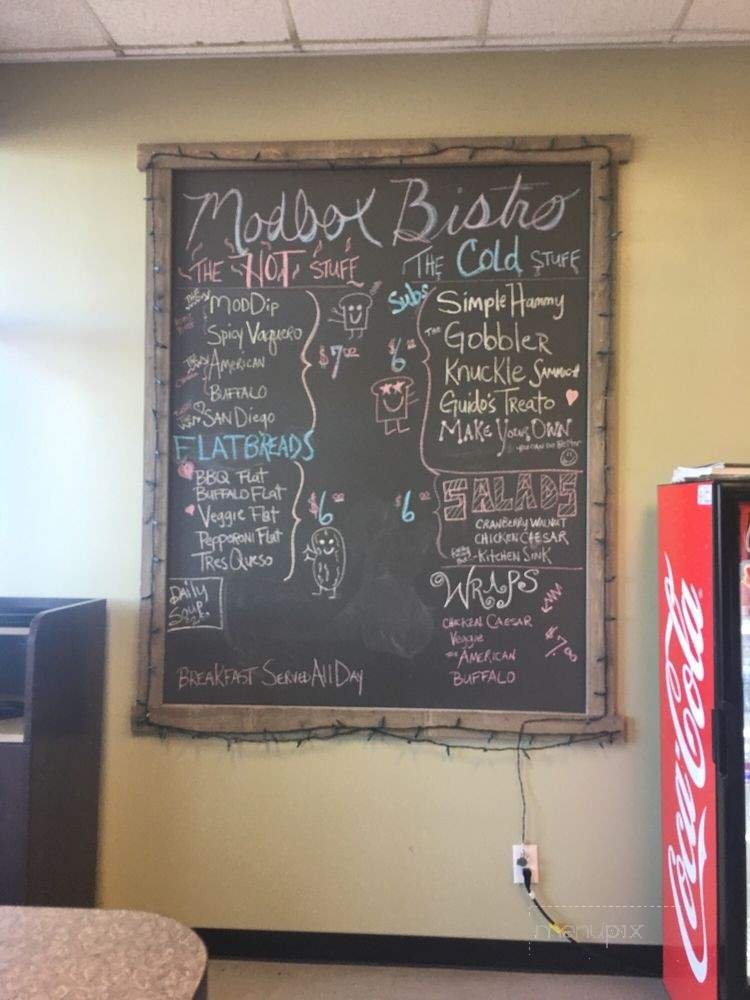 Modbox Bistro
THE HOT STUFF
MODDIP
SPICY VAQUERO
AMERICAN
BUFFALO
SAN DIEGO
$7.00
FLATBREADS
BBQ FLAT
BUFFALO FLAT
VEGGIE FLAT
PEPPERONI FLAT
TRES QUESO
$6.00
DAILY
SOUP
BREAKFAST SERVED ALL DAY
THE COLD STUFF
SUBS
SIMPLE HAMMY
THE GOBBLER
KNUCKLE SAMMICH
GUIDO'S TREATO
MAKE YOUR OWN
YOU CAN DO BETTER
$6.00
SALADS
CRANBERRY WALNUT
CHICKEN CAESAR
KITCHEN SINK
$6.00
WRAPS
CHICKEN CAESAR
VEGGIE
THE AMERICAN
BUFFALO
$7.00
Coca-Cola
menupix